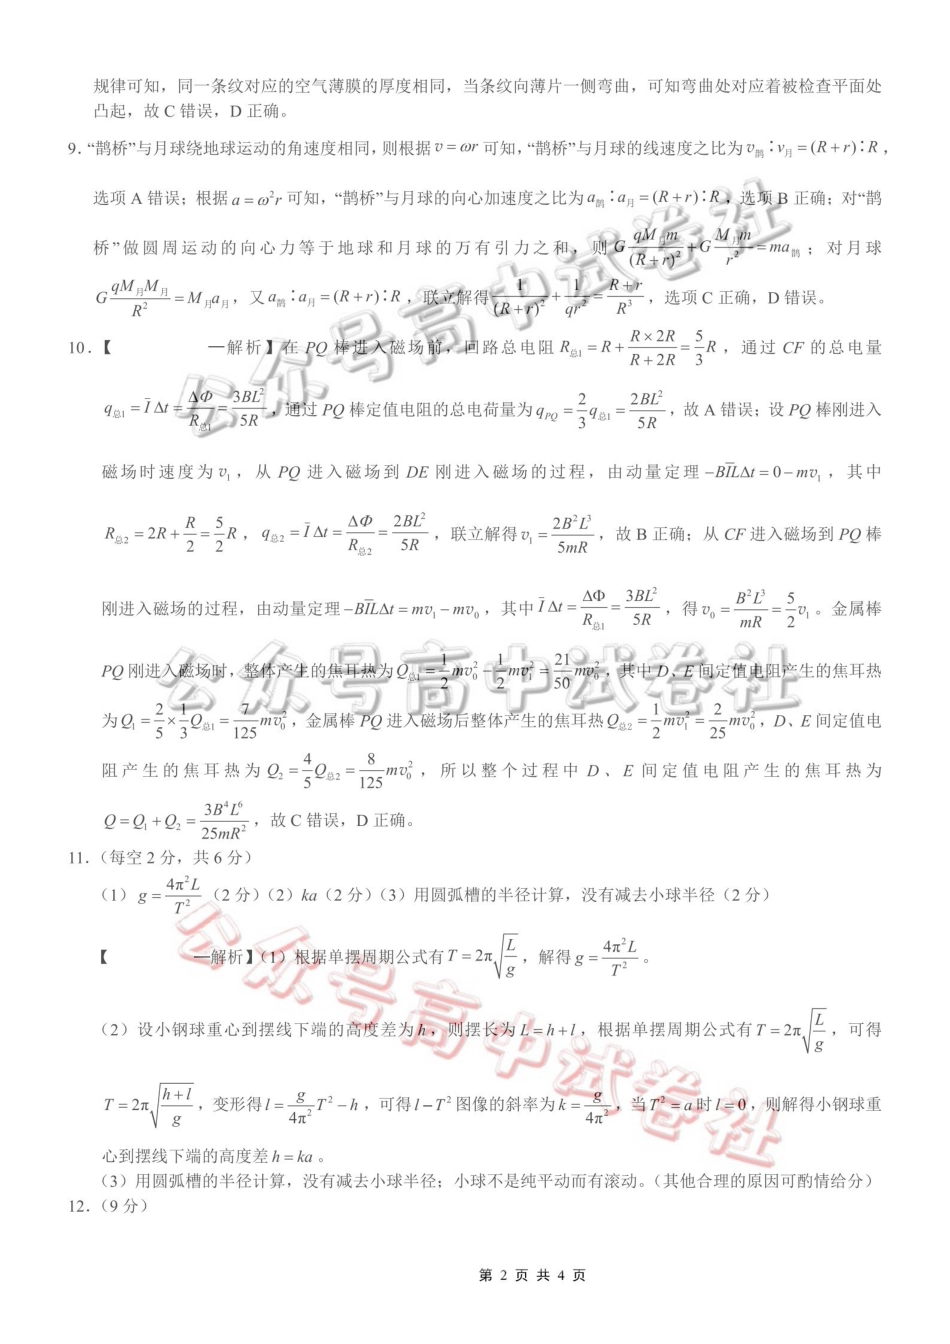 规律可知，同一条纹对应的空气薄膜的厚度相同，当条纹向薄片一侧弯曲，可知弯曲处对应着被检查平面处
凸起，故 C 错误，D 正确。
9．“鹊桥”与月球绕地球运动的角速度相同，则根据 v = ωr 可知，“鹊桥”与月球的线速度之比为 v鹊 : v月 = (R + r) : R，
选项 A 错误；根据 a = ω²r 可知，“鹊桥”与月球的向心加速度之比为 a鹊 : a月 = (R + r) : R，选项 B 正确；对“鹊
桥”做圆周运动的向心力等于地球和月球的万有引力之和，则 G qM月m/(R + r)² + G M月m/r² = ma鹊；对月球
G qM月M月/R² = M月a月，又 a鹊 : a月 = (R + r) : R，联立解得 1/(R + r)² + 1/qr² = (R + r)/R³，选项 C 正确，D 错误。
10．【 —解析】在 PQ 棒进入磁场前，回路总电阻 R总1 = R + (R × 2R)/(R + 2R) = 5/3 R，通过 CF 的总电量
q总1 = I̅Δt = ΔΦ/R总1 = 3BL²/5R，通过 PQ 棒定值电阻的总电荷量为 qPQ = 2/3 q总1 = 2BL²/5R，故 A 错误；设 PQ 棒刚进入
磁场时速度为 v₁，从 PQ 进入磁场到 DE 刚进入磁场的过程，由动量定理 −BI̅LΔt = 0 − mv₁，其中
R总2 = 2R + R/2 = 5/2 R，q总2 = I̅Δt = ΔΦ/R总2 = 2BL²/5R，联立解得 v₁ = 2B²L³/5mR，故 B 正确；从 CF 进入磁场到 PQ 棒
刚进入磁场的过程，由动量定理 −BI̅LΔt = mv₁ − mv₀，其中 I̅Δt = ΔΦ/R总1 = 3BL²/5R，得 v₀ = B²L³/mR = 5/2 v₁。金属棒
PQ 刚进入磁场时，整体产生的焦耳热为 Q总1 = 1/2 mv₀² − 1/2 mv₁² = 21/50 mv₀²，其中 D、E 间定值电阻产生的焦耳热
为 Q₁ = 2/5 × 1/3 Q总1 = 7/125 mv₀²，金属棒 PQ 进入磁场后整体产生的焦耳热 Q总2 = 1/2 mv₁² = 2/25 mv₀²，D、E 间定值电
阻产生的焦耳热为 Q₂ = 4/5 Q总2 = 8/125 mv₀²，所以整个过程中 D、E 间定值电阻产生的焦耳热为
Q = Q₁ + Q₂ = 3B⁴L⁶/25mR²，故 C 错误，D 正确。
11．（每空 2 分，共 6 分）
（1）g = 4π²L/T²（2 分）（2）ka（2 分）（3）用圆弧槽的半径计算，没有减去小球半径（2 分）
【 —解析】（1）根据单摆周期公式有 T = 2π√(L/g)，解得 g = 4π²L/T²。
（2）设小钢球重心到摆线下端的高度差为 h，则摆长为 L = h + l，根据单摆周期公式有 T = 2π√(L/g)，可得
T = 2π√((h + l)/g)，变形得 l = g/4π² T² − h，可得 l − T² 图像的斜率为 k = g/4π²，当 T² = a 时 l = 0，则解得小钢球重
心到摆线下端的高度差 h = ka。
（3）用圆弧槽的半径计算，没有减去小球半径；小球不是纯平动而有滚动。（其他合理的原因可酌情给分）
12．（9 分）
公众号高中试卷社
公众号高中试卷社
公众号高中试卷社
第 2 页 共 4 页